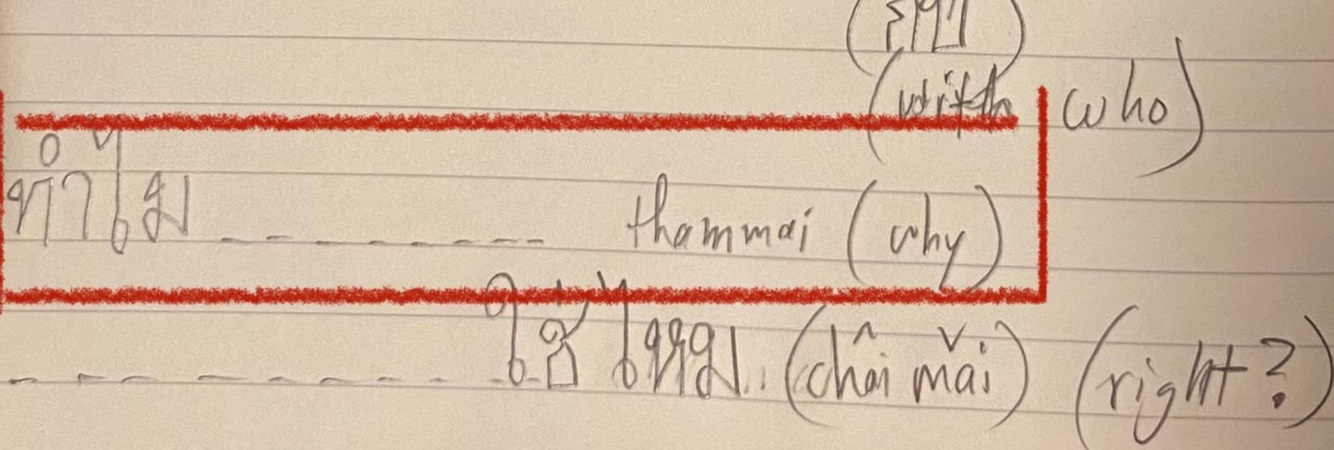 (with who)
ทำไม -------- thammai (why)
---------- ใช่ ไหม.. (châi mǎi) (right?)